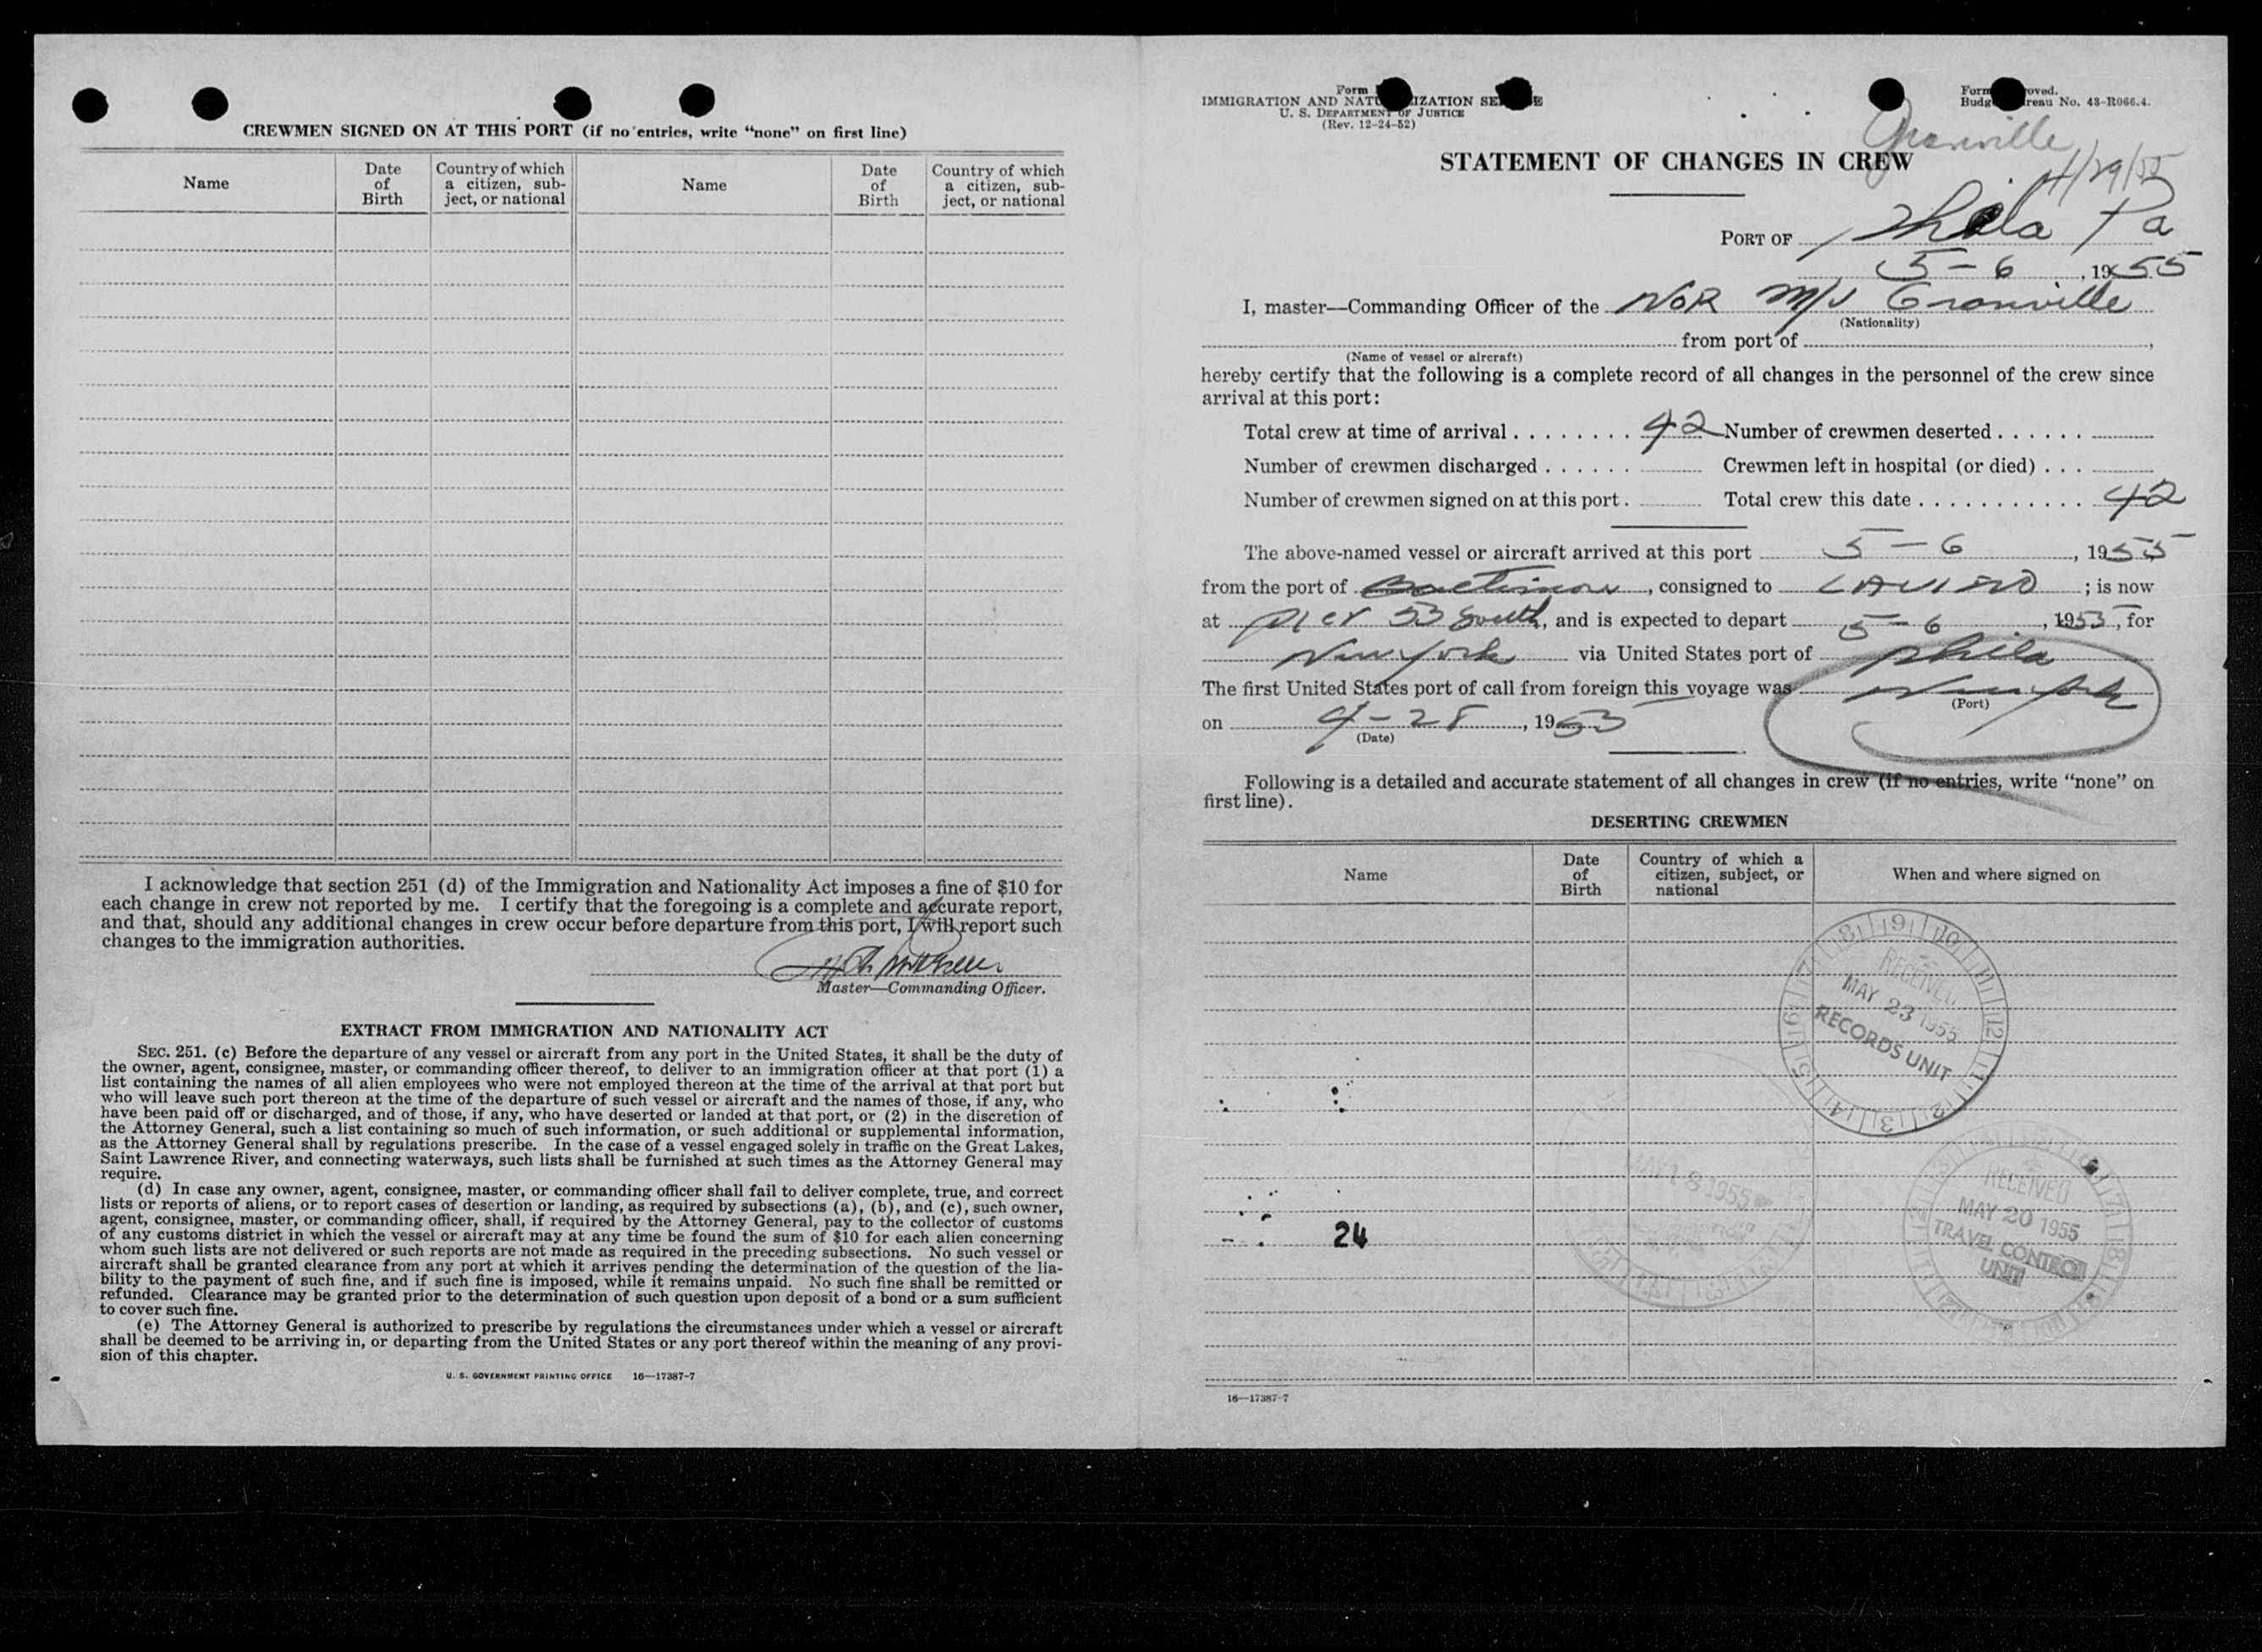 CREWMEN SIGNED ON AT THIS PORT (if no entries, write "none" on first line)
Name
Date of Birth
Country of which a citizen, subject, or national
Name
Date of Birth
Country of which a citizen, subject, or national
I acknowledge that section 251 (d) of the Immigration and Nationality Act imposes a fine of $10 for
each change in crew not reported by me. I certify that the foregoing is a complete and accurate report,
and that, should any additional changes in crew occur before departure from this port, I will report such
changes to the immigration authorities.
Master—Commanding Officer.
EXTRACT FROM IMMIGRATION AND NATIONALITY ACT
SEC. 251. (c) Before the departure of any vessel or aircraft from any port in the United States, it shall be the duty of
the owner, agent, consignee, master, or commanding officer thereof, to deliver to an immigration officer at that port (1) a
list containing the names of all alien employees who were not employed thereon at the time of the arrival at that port but
who will leave such port thereon at the time of the departure of such vessel or aircraft and the names of those, if any, who
have been paid off or discharged, and of those, if any, who have deserted or landed at that port, or (2) in the discretion of
the Attorney General, such a list containing so much of such information, or such additional or supplemental information,
as the Attorney General shall by regulations prescribe. In the case of a vessel engaged solely in traffic on the Great Lakes,
Saint Lawrence River, and connecting waterways, such lists shall be furnished at such times as the Attorney General may
require.
(d) In case any owner, agent, consignee, master, or commanding officer shall fail to deliver complete, true, and correct
lists or reports of aliens, or to report cases of desertion or landing, as required by subsections (a), (b), and (c), such owner,
agent, consignee, master, or commanding officer, shall, if required by the Attorney General, pay to the collector of customs
of any customs district in which the vessel or aircraft may at any time be found the sum of $10 for each alien concerning
whom such lists are not delivered or such reports are not made as required in the preceding subsections. No such vessel or
aircraft shall be granted clearance from any port at which it arrives pending the determination of the question of the lia-
bility to the payment of such fine, and if such fine is imposed, while it remains unpaid. No such fine shall be remitted or
refunded. Clearance may be granted prior to the determination of such question upon deposit of a bond or a sum sufficient
to cover such fine.
(e) The Attorney General is authorized to prescribe by regulations the circumstances under which a vessel or aircraft
shall be deemed to be arriving in, or departing from the United States or any port thereof within the meaning of any provi-
sion of this chapter.
U. S. GOVERNMENT PRINTING OFFICE 16—17387-7
Form
IMMIGRATION AND NATURALIZATION SERVICE
U. S. DEPARTMENT OF JUSTICE
(Rev. 12-24-52)
Form Approved.
Budget Bureau No. 43-R066.4.
Granville
4/29/55
STATEMENT OF CHANGES IN CREW
PORT OF Phila Pa
5-6, 1955
I, master—Commanding Officer of the NOR M/V Granville
(Nationality)
from port of ,
(Name of vessel or aircraft)
hereby certify that the following is a complete record of all changes in the personnel of the crew since
arrival at this port:
Total crew at time of arrival 42 Number of crewmen deserted
Number of crewmen discharged Crewmen left in hospital (or died)
Number of crewmen signed on at this port Total crew this date 42
The above-named vessel or aircraft arrived at this port 5-6, 1955
from the port of Baltimore, consigned to LAVINO; is now
at pier 53 South, and is expected to depart 5-6, 1955, for
New York via United States port of Phila
The first United States port of call from foreign this voyage was New York
(Port)
on 4-28, 1955
(Date)
Following is a detailed and accurate statement of all changes in crew (if no entries, write "none" on
first line).
DESERTING CREWMEN
Name
Date of Birth
Country of which a citizen, subject, or national
When and where signed on
RECEIVED
MAY 23 1955
RECORDS UNIT
MAY 18 1955
RECEIVED
MAY 20 1955
TRAVEL CONTROL
UNIT
24
16—17387-7